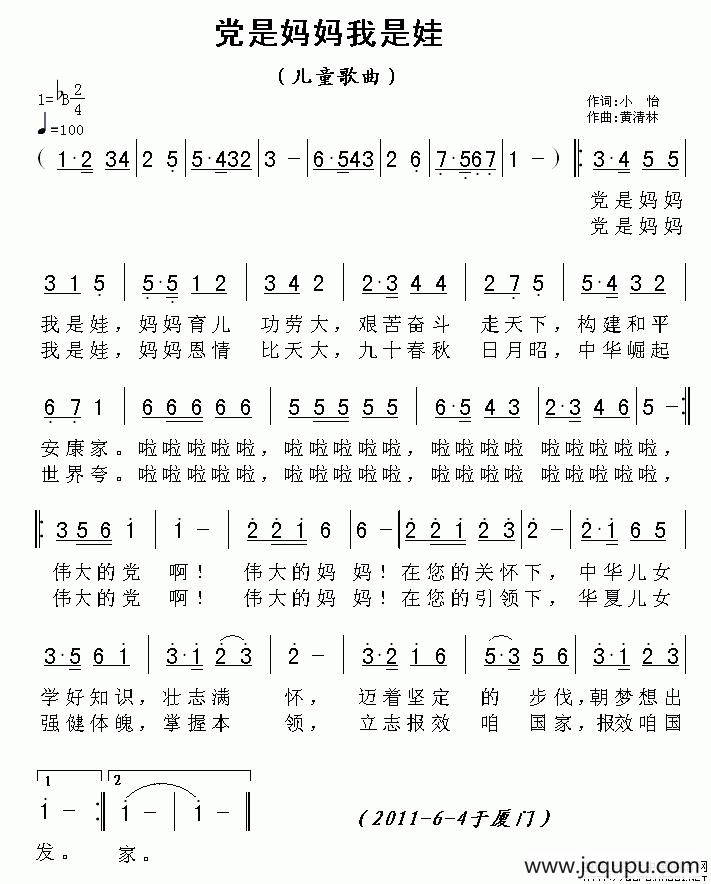 党是妈妈我是娃
（儿童歌曲）
1=♭B 2/4
♩=100
作词:小 怡
作曲:黄清林
( 1·2 34 | 2 5 | 5·432 | 3 － | 6·543 | 2 6 | 7·567 | 1 － ) ‖: 3·4 5 5 |
党是妈妈
党是妈妈
3 1 5 | 5·5 1 2 | 3 4 2 | 2·3 4 4 | 2 7 5 | 5·4 3 2 |
我是娃，妈妈育儿 功劳大，艰苦奋斗 走天下，构建和平
我是娃，妈妈恩情 比天大，九十春秋 日月昭，中华崛起
6 7 1 | 6 6 6 6 6 | 5 5 5 5 5 | 6·5 4 3 | 2·3 4 6 | 5 － :‖
安康家。啦啦啦啦啦，啦啦啦啦啦，啦啦啦啦 啦啦啦啦啦，
世界夸。啦啦啦啦啦，啦啦啦啦啦，啦啦啦啦 啦啦啦啦啦，
‖: 3 5 6 i | i － | 2 2 i 6 | 6 － | 2 2 i 2 3 | 2 － | 2·i 6 5 |
伟大的党 啊！ 伟大的妈 妈！在您的关怀下，中华儿女
伟大的党 啊！ 伟大的妈 妈！在您的引领下，华夏儿女
3·5 6 i | 3·i 2 3 | 2 － | 3·2 i 6 | 5·3 5 6 | 3·i 2 3 |
学好知识，壮志满 怀，迈着坚定 的 步伐，朝梦想出
强健体魄，掌握本 领，立志报效 咱 国家，报效咱国
1 2
i － :‖ i － | i － ‖
(2011-6-4于厦门)
发。 家。
www.jcqupu.com